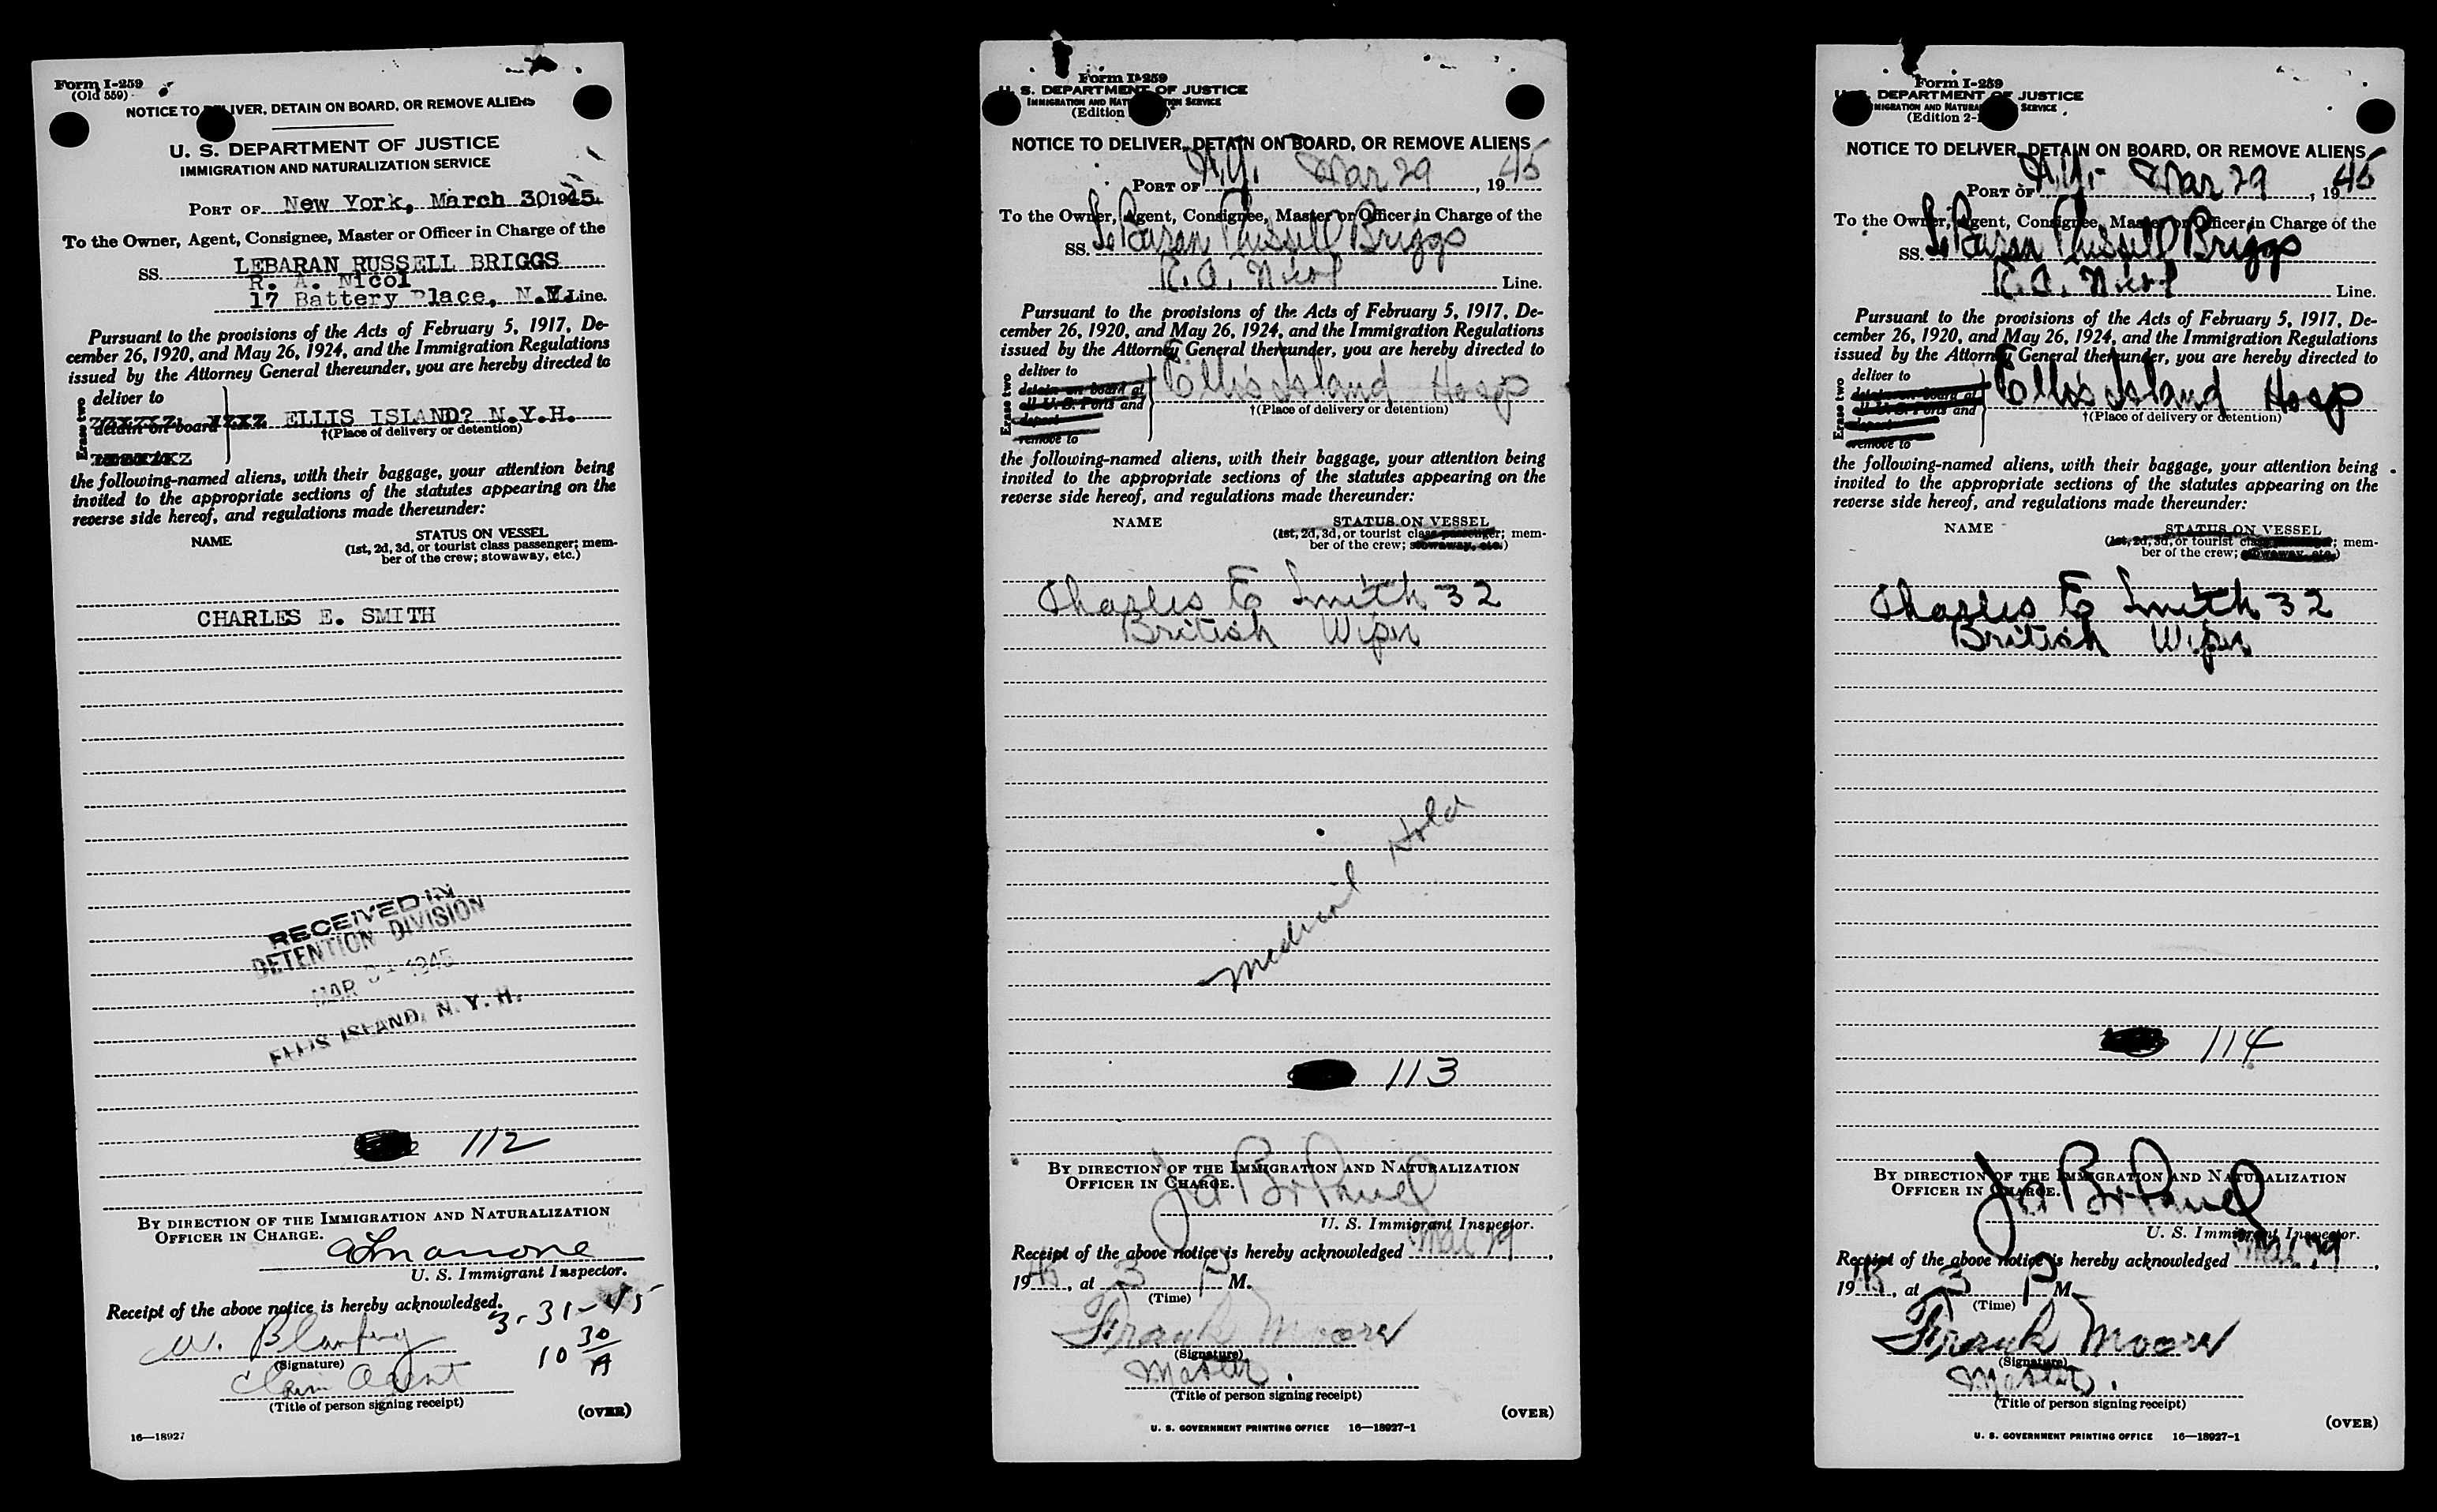 Form I-259
(Old 559)
NOTICE TO DELIVER, DETAIN ON BOARD, OR REMOVE ALIENS
U. S. DEPARTMENT OF JUSTICE
IMMIGRATION AND NATURALIZATION SERVICE
PORT OF New York, March 30 1945
To the Owner, Agent, Consignee, Master or Officer in Charge of the
SS. LEBARAN RUSSELL BRIGGS
R. A. Nicol
17 Battery Place, N.Y. Line.
Pursuant to the provisions of the Acts of February 5, 1917, De-
cember 26, 1920, and May 26, 1924, and the Immigration Regulations
issued by the Attorney General thereunder, you are hereby directed to
Erase two
deliver to
detain on board
ELLIS ISLAND? N.Y.H.
†(Place of delivery or detention)
the following-named aliens, with their baggage, your attention being
invited to the appropriate sections of the statutes appearing on the
reverse side hereof, and regulations made thereunder:
NAME
STATUS ON VESSEL
(1st, 2d, 3d, or tourist class passenger; mem-
ber of the crew; stowaway, etc.)
CHARLES E. SMITH
RECEIVED IN
DETENTION DIVISION
MAR 1945
ELLIS ISLAND, N. Y. H.
112
BY DIRECTION OF THE IMMIGRATION AND NATURALIZATION
OFFICER IN CHARGE.
U. S. Immigrant Inspector.
Receipt of the above notice is hereby acknowledged.
3-31-45
10 30 A
W.
(Signature)
Claim Agent
(Title of person signing receipt)
(OVER)
16—18927
Form I-259
U. S. DEPARTMENT OF JUSTICE
IMMIGRATION AND NATURALIZATION SERVICE
(Edition
NOTICE TO DELIVER, DETAIN ON BOARD, OR REMOVE ALIENS
PORT OF N.Y. Mar 29, 1945
To the Owner, Agent, Consignee, Master or Officer in Charge of the
SS. LeBaran Russell Briggs
R.A. Nicol Line.
Pursuant to the provisions of the Acts of February 5, 1917, De-
cember 26, 1920, and May 26, 1924, and the Immigration Regulations
issued by the Attorney General thereunder, you are hereby directed to
Erase two
deliver to
detain on board at
all U.S. Ports and
deport
remove to
Ellis Island Hosp
†(Place of delivery or detention)
the following-named aliens, with their baggage, your attention being
invited to the appropriate sections of the statutes appearing on the
reverse side hereof, and regulations made thereunder:
NAME
STATUS ON VESSEL
(1st, 2d, 3d, or tourist class passenger; mem-
ber of the crew; stowaway, etc.)
Charles E Smith 32
British Wiper
medical Hold
113
BY DIRECTION OF THE IMMIGRATION AND NATURALIZATION
OFFICER IN CHARGE.
U. S. Immigrant Inspector.
Receipt of the above notice is hereby acknowledged Mar 29,
1945, at 3 P M.
(Time)
Frank Moore
(Signature)
Master.
(Title of person signing receipt)
(OVER)
U. S. GOVERNMENT PRINTING OFFICE 16—18927-1
Form I-259
U. S. DEPARTMENT OF JUSTICE
IMMIGRATION AND NATURALIZATION SERVICE
(Edition 2-
NOTICE TO DELIVER, DETAIN ON BOARD, OR REMOVE ALIENS
PORT OF N.Y. Mar 29, 1945
To the Owner, Agent, Consignee, Master or Officer in Charge of the
SS. LeBaran Russell Briggs
R.A. Nicol Line.
Pursuant to the provisions of the Acts of February 5, 1917, De-
cember 26, 1920, and May 26, 1924, and the Immigration Regulations
issued by the Attorney General thereunder, you are hereby directed to
Erase two
deliver to
detain on board at
all U.S. Ports and
deport
remove to
Ellis Island Hosp
†(Place of delivery or detention)
the following-named aliens, with their baggage, your attention being
invited to the appropriate sections of the statutes appearing on the
reverse side hereof, and regulations made thereunder:
NAME
STATUS ON VESSEL
(1st, 2d, 3d, or tourist class passenger; mem-
ber of the crew; stowaway, etc.)
Charles E Smith 32
British Wiper
114
BY DIRECTION OF THE IMMIGRATION AND NATURALIZATION
OFFICER IN CHARGE.
U. S. Immigrant Inspector.
Receipt of the above notice is hereby acknowledged Mar 29,
1945, at 3 P M.
(Time)
Frank Moore
(Signature)
Master.
(Title of person signing receipt)
(OVER)
U. S. GOVERNMENT PRINTING OFFICE 16—18927-1